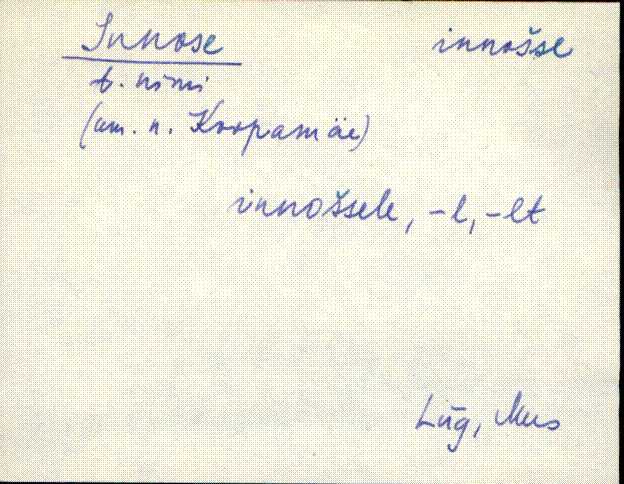 Innose innošse
t. nimi
(am. n. Koopamäe)
innošsele, -l, -lt
Lüg, Mus